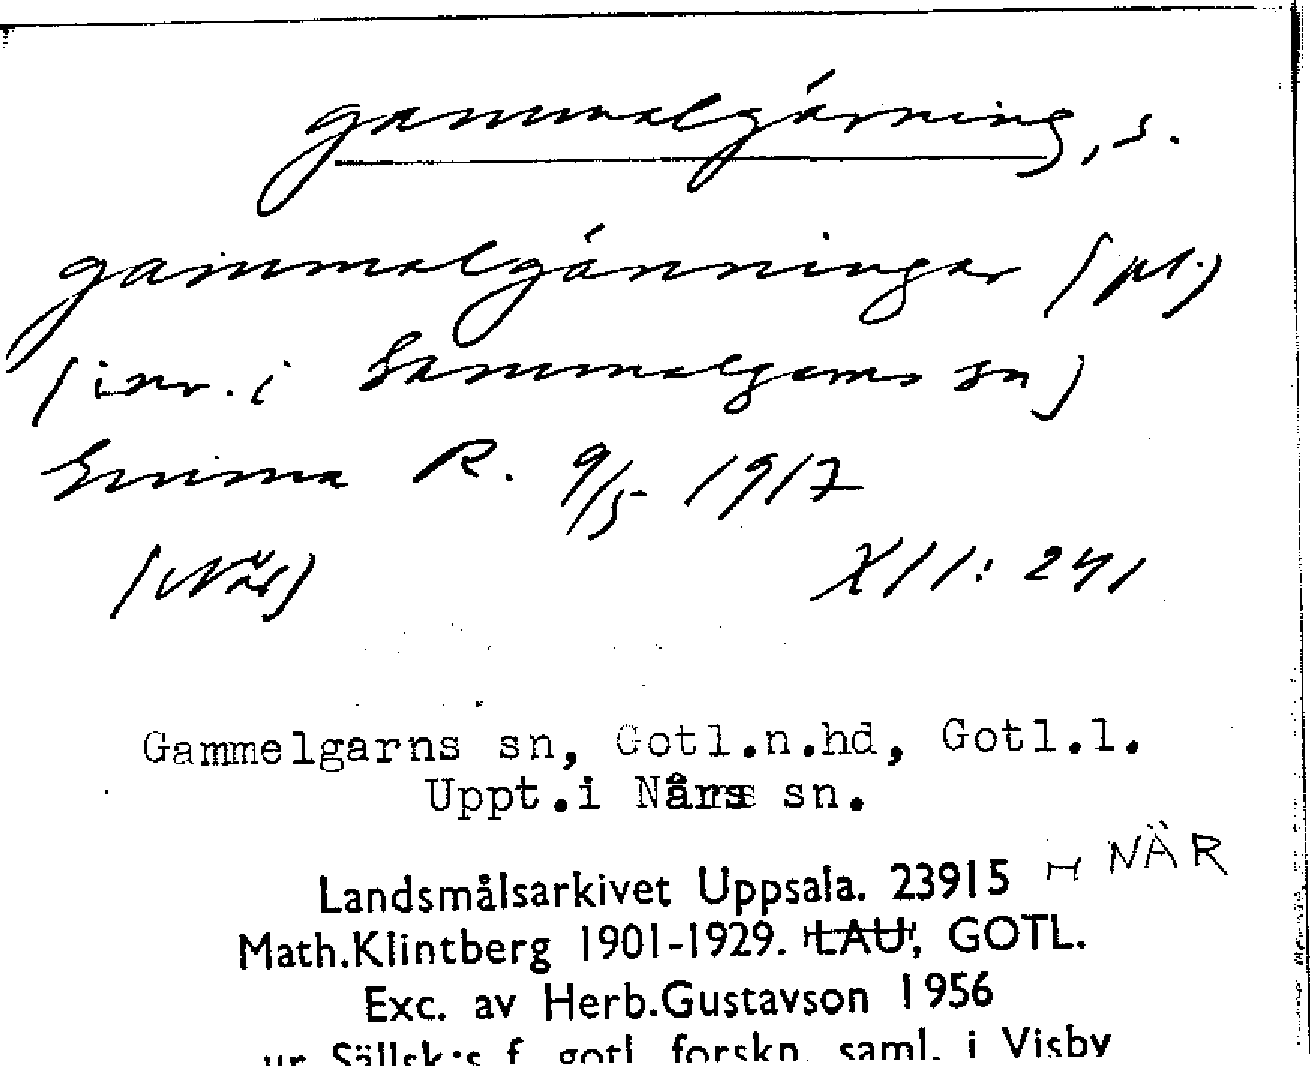 gammalgárning, s.
gammalgánningar (pl.)
(inv. i Gammelgarns sn)
Emma R. 9/5 1917
(När)
XII: 241
Gammelgarns sn, Gotl.n.hd, Gotl.l.
Uppt.i När sn.
Landsmålsarkivet Uppsala. 23915 H NÄR
Math.Klintberg 1901-1929. LAU, GOTL.
Exc. av Herb.Gustavson 1956
ur Sällsk:s f. gotl. forskn. saml. i Visby